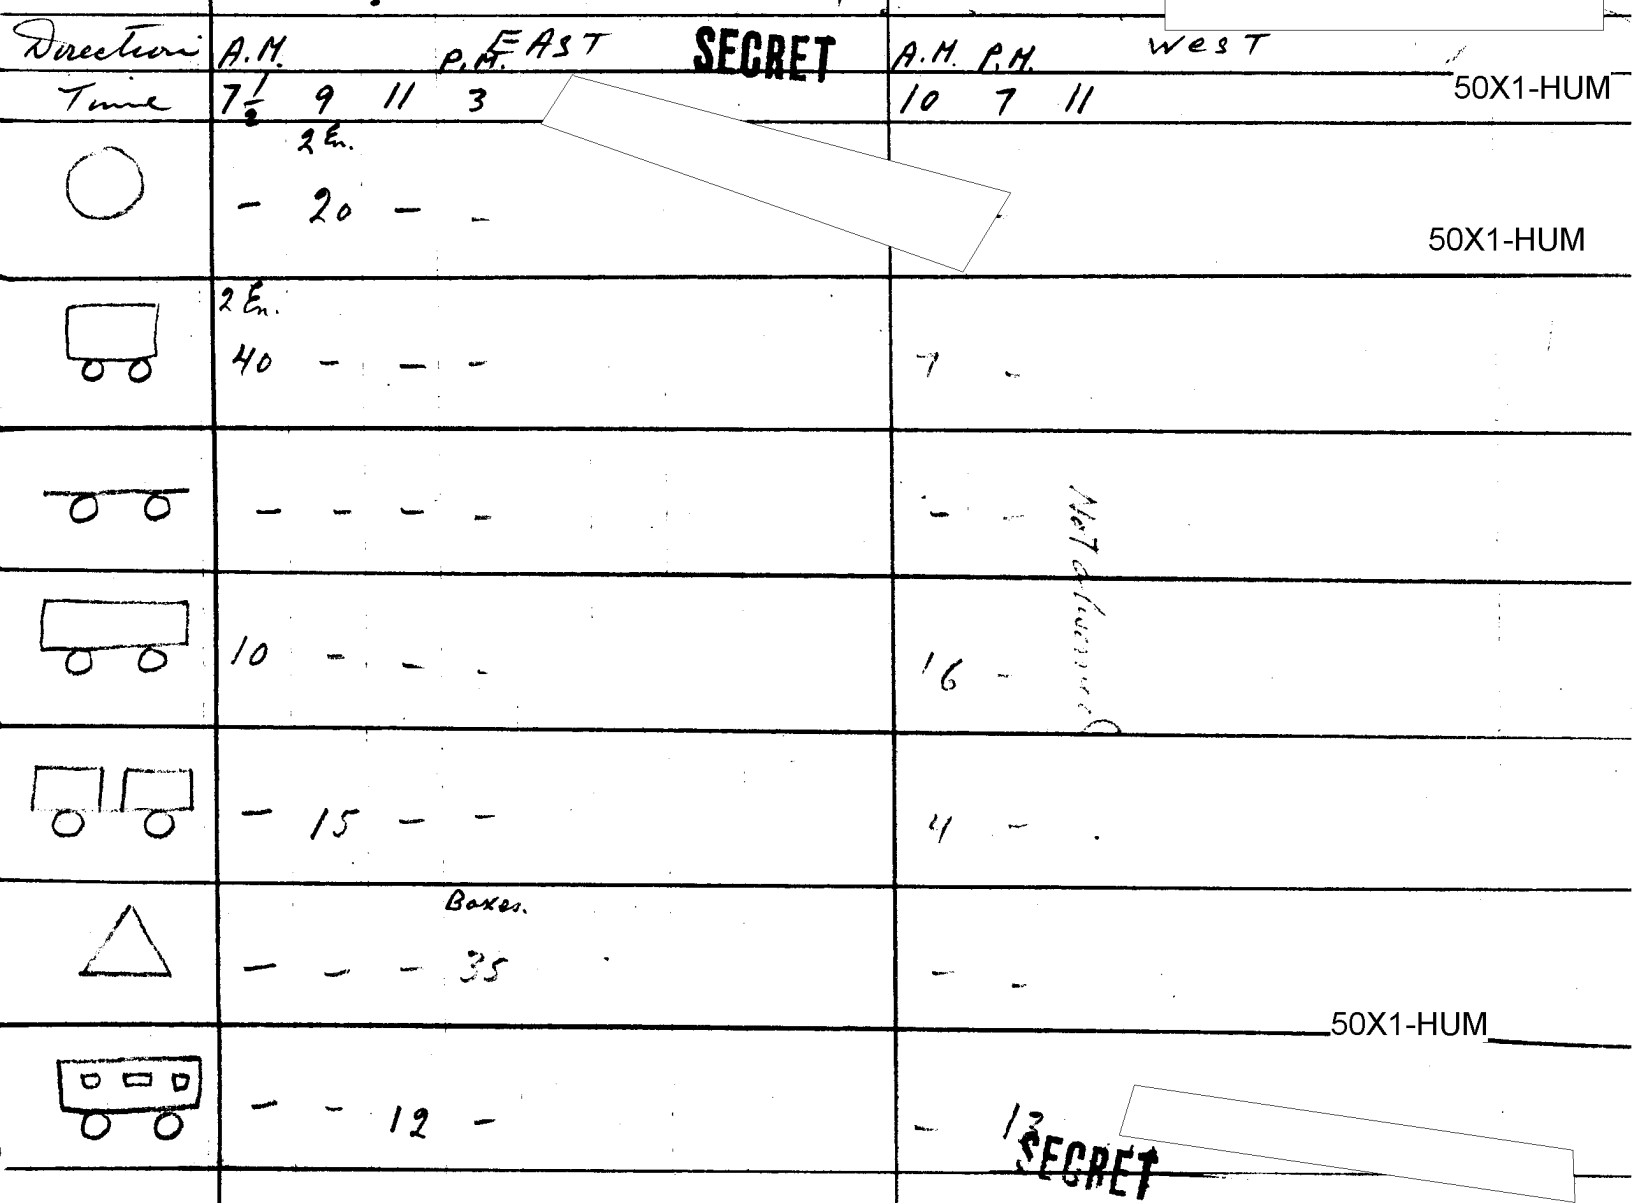 Direction A.M. P.M. EAST SECRET A.M. P.M. West
Time 7 1/2 9 11 3 10 7 11 50X1-HUM
2 En.
- 20 - - -
50X1-HUM
2 En.
40 - - - 7 -
- - - - - -
Not
10 - - - 16 -
- 15 - - 4 -
Boxes.
- - - 35 - -
50X1-HUM
- - 12 - - 13
SECRET